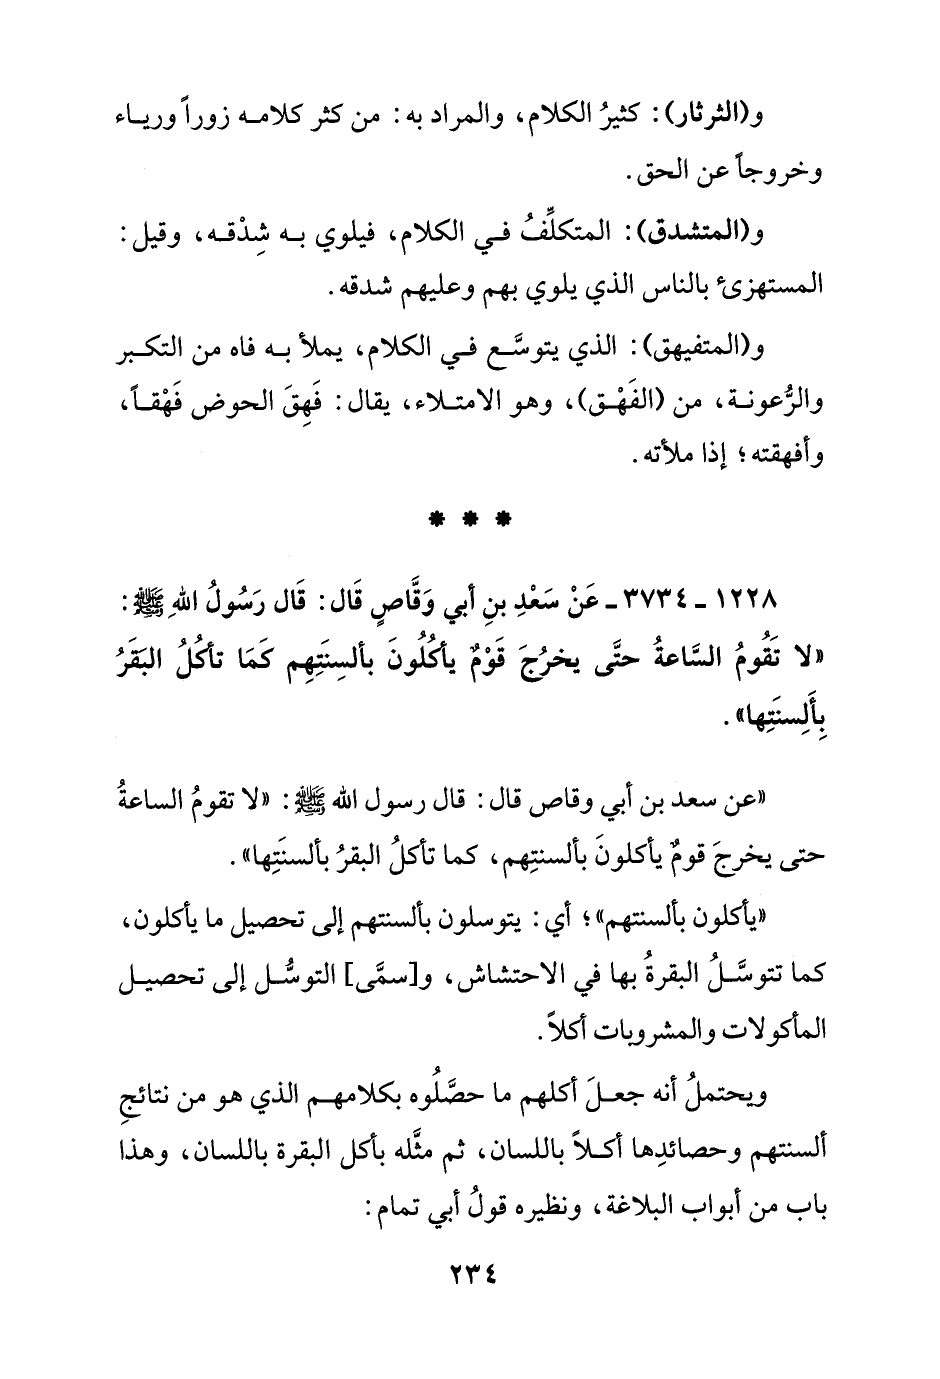 و(الثرثار): كثيرُ الكلام، والمراد به: من كثر كلامه زوراً ورياء
وخروجاً عن الحق.
و(المتشدق): المتكلِّفُ في الكلام، فيلوي به شِدْقه، وقيل:
المستهزئ بالناس الذي يلوي بهم وعليهم شدقه.
و(المتفيهق): الذي يتوسَّع في الكلام، يملأ به فاه من التكبر
والرُّعونة، من (الفَهْق)، وهو الامتلاء، يقال: فَهِقَ الحوض فَهْقاً،
وأفهقته؛ إذا ملأته.
* * *
١٢٢٨ - ٣٧٣٤ - عَنْ سَعْدِ بنِ أبي وَقَّاصٍ قَال: قَال رَسُولُ اللهِ ﷺ:
«لا تَقُومُ السَّاعةُ حتَّى يخرُجَ قَوْمٌ يأكُلُونَ بألسِنَتِهِم كَمَا تأكُلُ البَقَرُ
بِأَلِسنَتِها».
«عن سعد بن أبي وقاص قال: قال رسول الله ﷺ: «لا تقومُ الساعةُ
حتى يخرجَ قومٌ يأكلونَ بألسنتِهم، كما تأكلُ البقرُ بألسنتِها».
«يأكلون بألسنتهم»؛ أي: يتوسلون بألسنتهم إلى تحصيل ما يأكلون،
كما تتوسَّلُ البقرةُ بها في الاحتشاش، و[سمَّى] التوسُّل إلى تحصيل
المأكولات والمشروبات أكلاً.
ويحتملُ أنه جعلَ أكلهم ما حصَّلُوه بكلامهم الذي هو من نتائجِ
ألسنتهم وحصائدِها أكلاً باللسان، ثم مثَّله بأكل البقرة باللسان، وهذا
باب من أبواب البلاغة، ونظيره قولُ أبي تمام:
٢٣٤